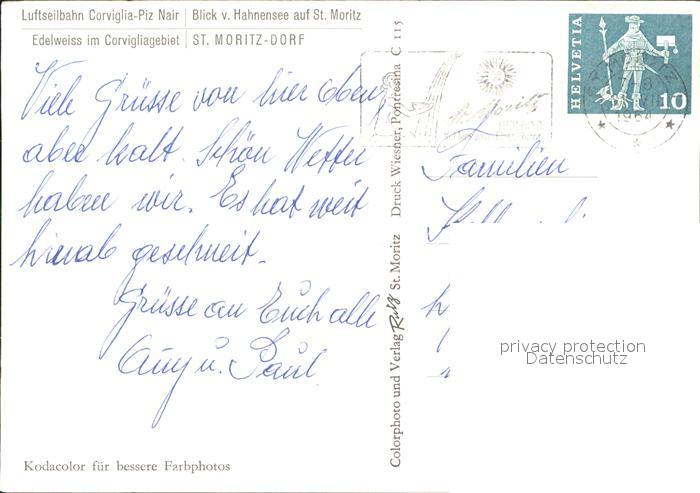 Luftseilbahn Corviglia-Piz Nair | Blick v. Hahnensee auf St. Moritz
Edelweiss im Corvigliagebiet | ST. MORITZ-DORF
Viele Grüsse von hier oben,
aber kalt. Schön Wetter
haben wir. Es hat weit
hinab geschneit.
Grüsse an Euch alle
u. Paul
Kodacolor für bessere Farbphotos
Colorphoto und Verlag St. Moritz Druck Wiesner, Pontresina C 115
St. Moritz
HELVETIA
10
1964
Familien
privacy protection
Datenschutz